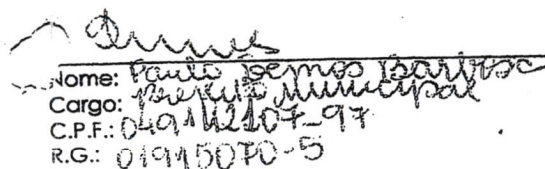 Nome: Paulo Lemos Barbosa
Cargo: Prefeito Municipal
C.P.F.: 049112107-97
R.G.: 01915070-5